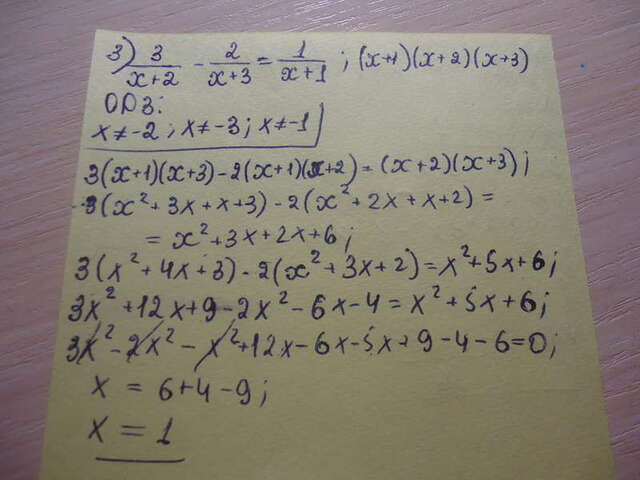 3) 3/(x+2) - 2/(x+3) = 1/(x+1) ; (x+1)(x+2)(x+3)
ОДЗ:
x ≠ -2 ; x ≠ -3 ; x ≠ -1
3(x+1)(x+3) - 2(x+1)(x+2) = (x+2)(x+3) ;
3(x² + 3x + x + 3) - 2(x² + 2x + x + 2) =
= x² + 3x + 2x + 6 ;
3(x² + 4x + 3) - 2(x² + 3x + 2) = x² + 5x + 6 ;
3x² + 12x + 9 - 2x² - 6x - 4 = x² + 5x + 6 ;
3x² - 2x² - x² + 12x - 6x - 5x + 9 - 4 - 6 = 0 ;
x = 6 + 4 - 9 ;
x = 1